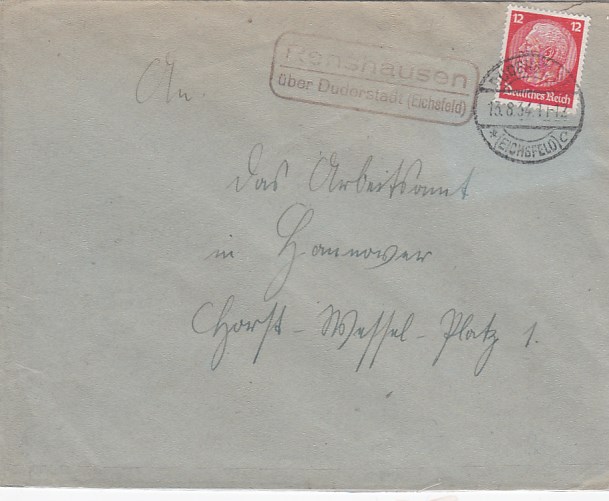 12 12
Deutsches Reich
Renshausen
über Duderstadt (Eichsfeld)
13.8.34.11-12
* (EICHSFELD) c
An.
das Arbeitsamt
in Hannover
Horst-Wessel-Platz 1.